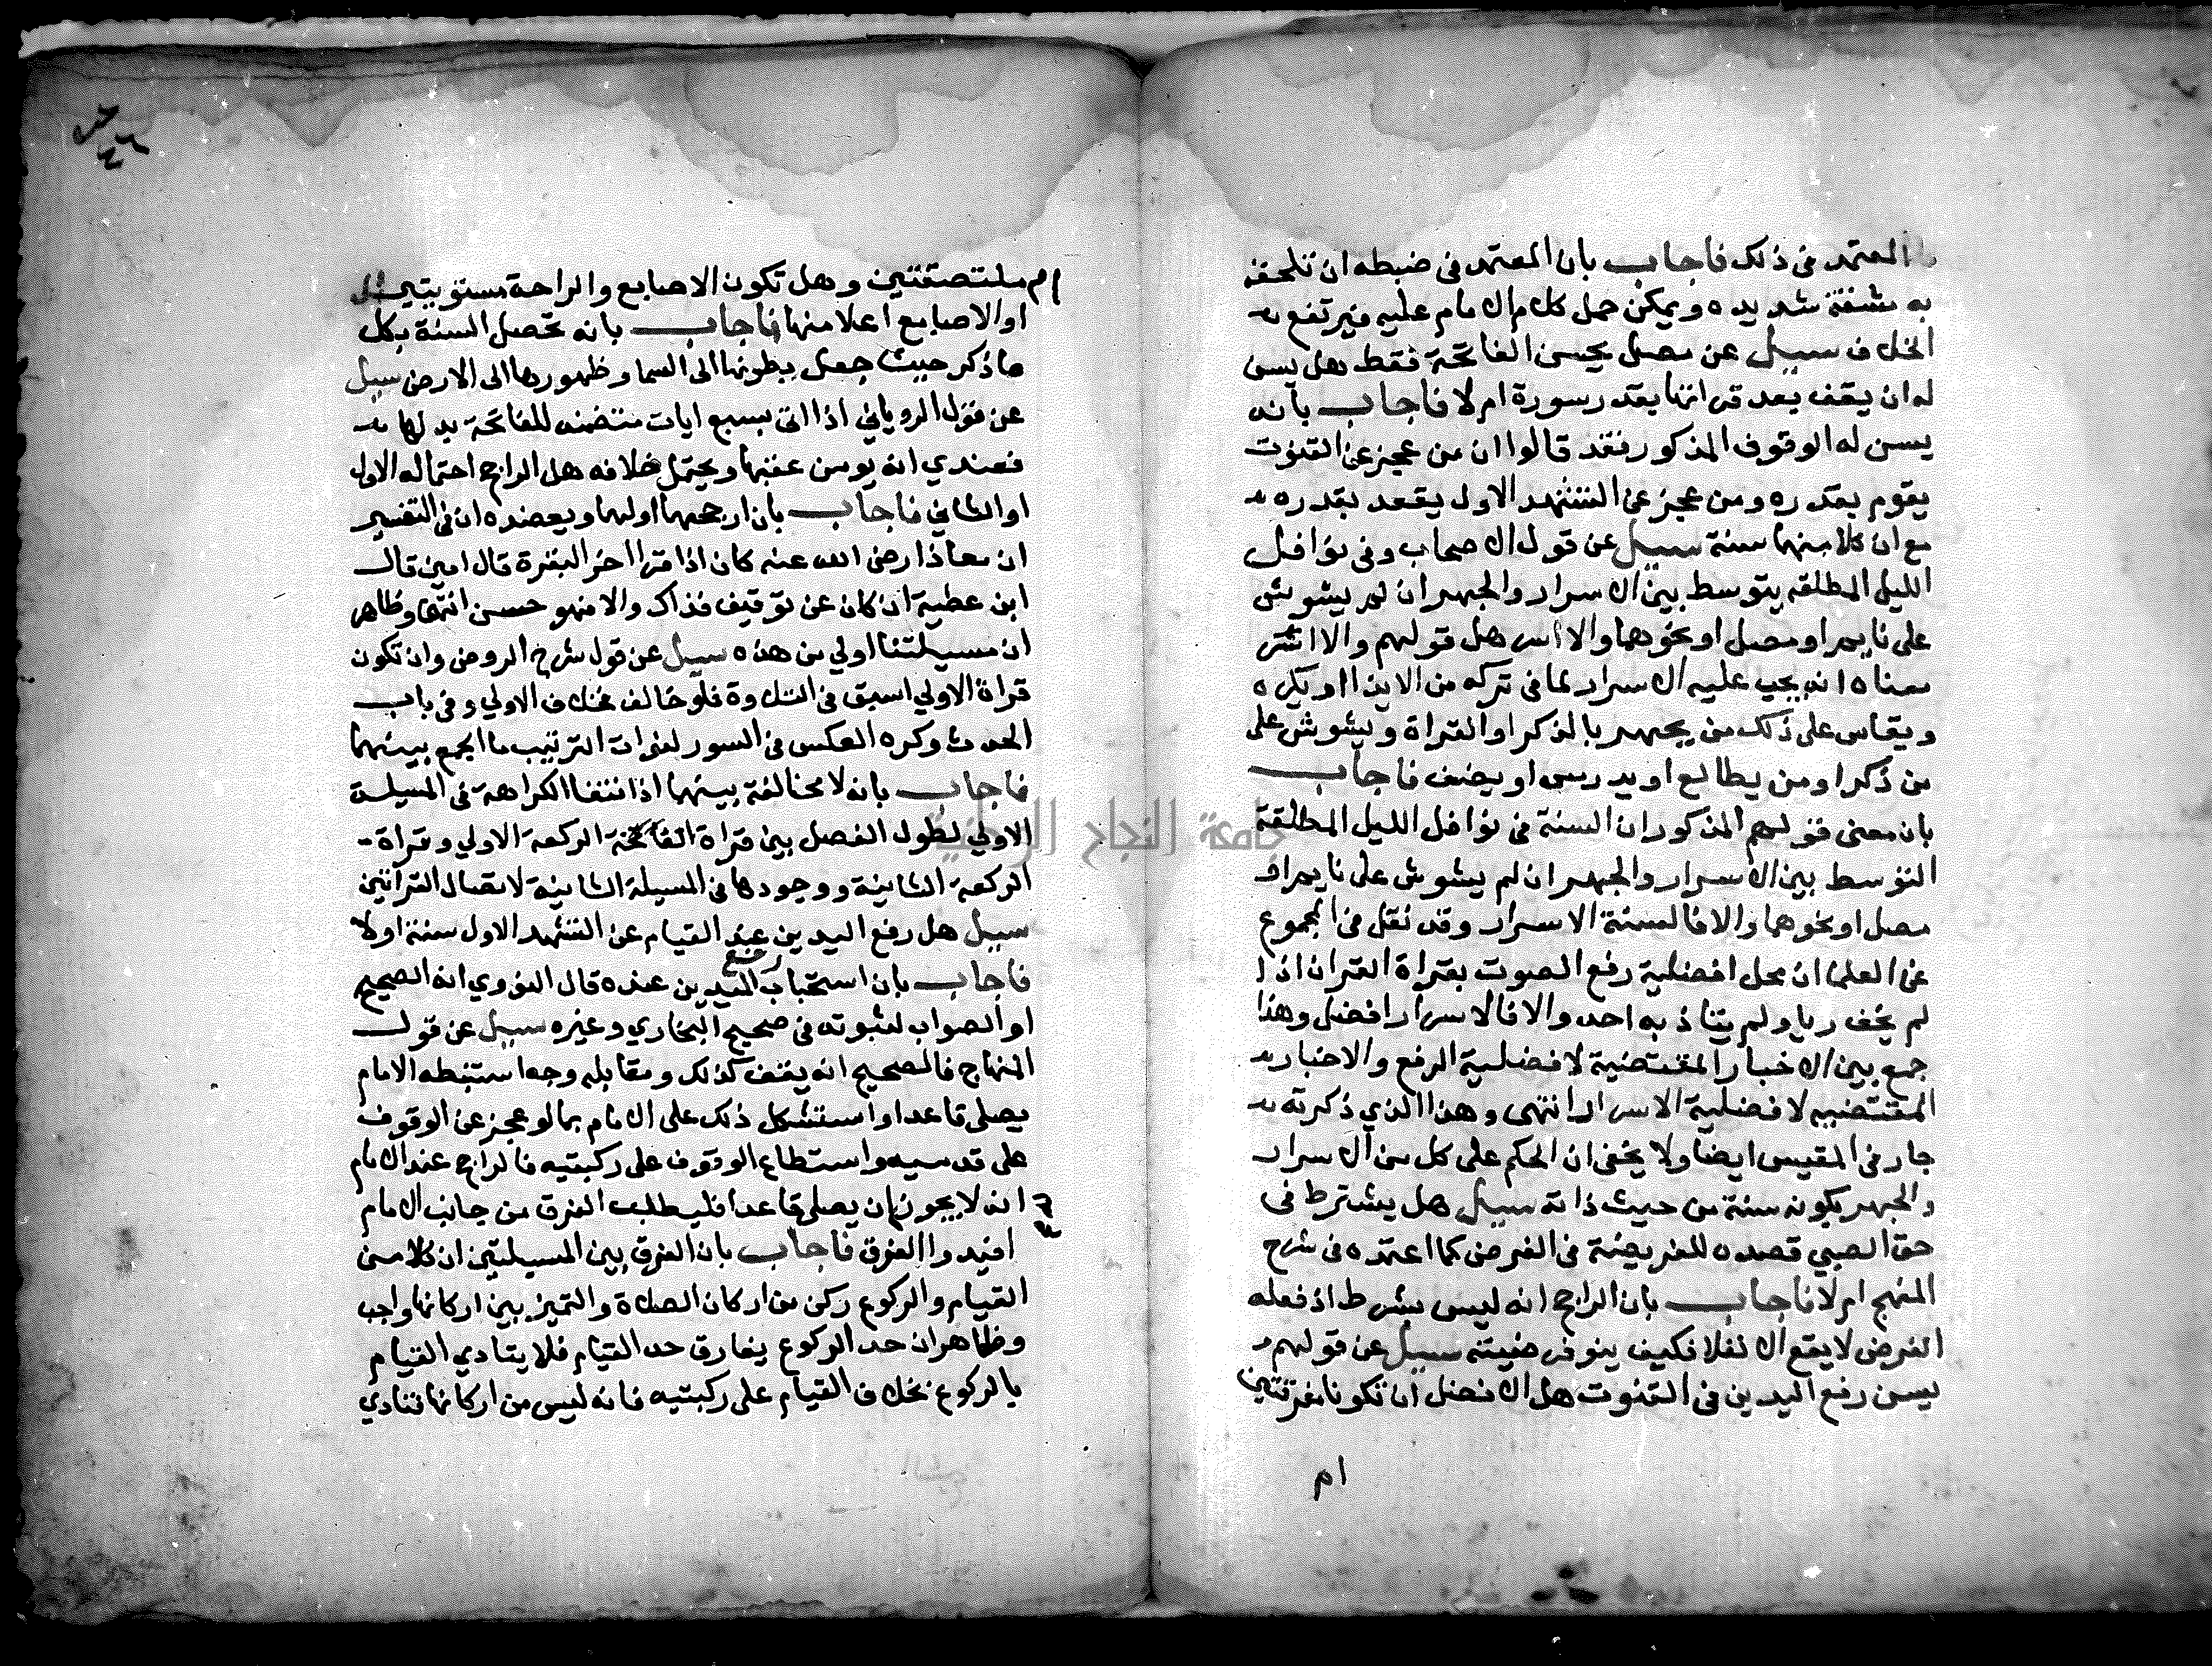 المعتمد في ذلك فاجاب بان المعتمد في ضبطه ان تلحقه
به مشقة شديده ويمكن حمل كلام الامام عليه فيرتفع
الخلاف سييل عن مصل يحسن الفاتحة فقط هل يسن
له ان يقف بعد قراتها بقدر سورة ام لا فاجاب بانه
يسن له الوقوف المذكور فقد قالوا ان من عجز عن القنوت
يقوم بقدره ومن عجز عن التشهد الاول يقعد بقدره
مع ان كلا منهما سنة سييل عن قول الاصحاب وفي نوافل
الليل المطلقه يتوسط بين الاسرار والجهر ان لم يشوش
على نايم او مصل او نحوهما والا اسر هل قولهم والا اسر
معناه انه يجب عليه الاسرار لما في تركه من الايذا او يكره
ويقاس على ذلك من يجهر بالذكر او القراة ويشوش على
من ذكر او من يطالع او يدرس او يصنف فاجاب
بان معنى قولهم المذكور ان السنة في نوافل الليل المطلقة
التوسط بين الاسرار والجهر ان لم يشوش على نايم او
مصل او نحوهما والا فالسنة الاسرار وقد نقل في المجموع
عن العلما ان محل افضلية رفع الصوت بقراة القران اذا
لم يخف ريا ولم يتاذ به احد والا فالاسرار افضل وهذا
جمع بين الاخبار المقتضية لافضلية الرفع والاخبار
المقتضيه لافضلية الاسرار انتهى وهذا الذي ذكرته
جار في المقيس ايضا ولا يخفى ان الحكم على كل من الاسرار
والجهر بكونه سنة من حيث ذاته سييل هل يشترط في
حق الصبي قصده للفريضة في الفرض كما اعتمده في شرح
المنهج ام لا فاجاب بان الراجح انه ليس بشرط اذ فعله
الفرض لا يقع الا نفلا فكيف ينوي فرضيته سييل عن قولهم
يسن رفع اليدين في القنوت هل الافضل ان تكونا مفرقتين
ام
ام ملتصقتين وهل تكون الاصابع والراحة مستويتين
او الاصابع اعلا منها فاجاب بانه تحصل السنة بكل
ما ذكر حيث جعل بطونها الى السما وظهورها الى الارض سييل
عن قول الروياني اذا اتى بسبع ايات متضمنه للفاتحة بدلها
فعندي انه يومن عقبها ويحتمل خلافه هل الراجح احتماله الاول
او الثاني فاجاب بان ارجحهما اولهما ويعضده ان في التفسير
ان معاذا رضي الله عنه كان اذا قرا اخر البقرة قال امين قال
ابن عطية ان كان عن توقيف فذاك والا فهو حسن انتهى وظاهر
ان مسيلتنا اولي من هذه سييل عن قول شرح الروض وان تكون
قراة الاولي اسبق في التلاوة فلو خالف خلاف الاولي وفي باب
الحدث وكره العكس في السور لفوات الترتيب ما الجمع بينهما
فاجاب بانه لا مخالفة بينهما اذ انتفا الكراهة في المسيلة
الاولي لطول الفصل بين قراة الفاتحة الركعة الاولي وقراة
الركعة الثانية ووجودها في المسيلة الثانية لاتصال القراتين
سييل هل رفع اليدين عند القيام عن التشهد الاول سنة او لا
فاجاب بان استحباب رفع اليدين عنده قال النووي انه الصحيح
او الصواب لثبوته في صحيح البخاري وغيره سييل عن قول
المنهاج فالصحيح انه يقف كذلك ومقابله وجه استنبطه الامام
يصلي قاعدا واستشكل ذلك على الامام بما لو عجز عن الوقوف
على قدميه واستطاع الوقوف على ركبتيه فالراجح عند الامام
انه لا يجوز ان يصلي قاعدا فليطلب الفرق من جانب الامام
افيدوا الفرق فاجاب بان الفرق بين المسيلتين ان كلا من
القيام والركوع ركن من اركان الصلاة والتميز بين اركانها واجب
وظاهر ان حد الركوع يفارق حد القيام فلا يتادي القيام
بالركوع بخلاف القيام على ركبتيه فانه ليس من اركانها فتادي
جامعة النجاح الوطنية